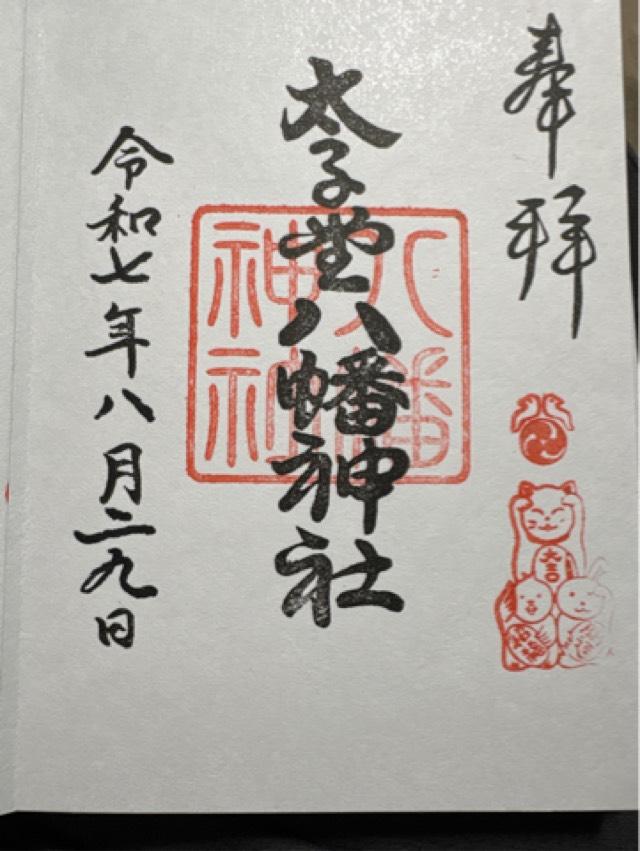 奉拝
太子堂八幡神社
八幡
神社
大吉
令和七年八月二九日